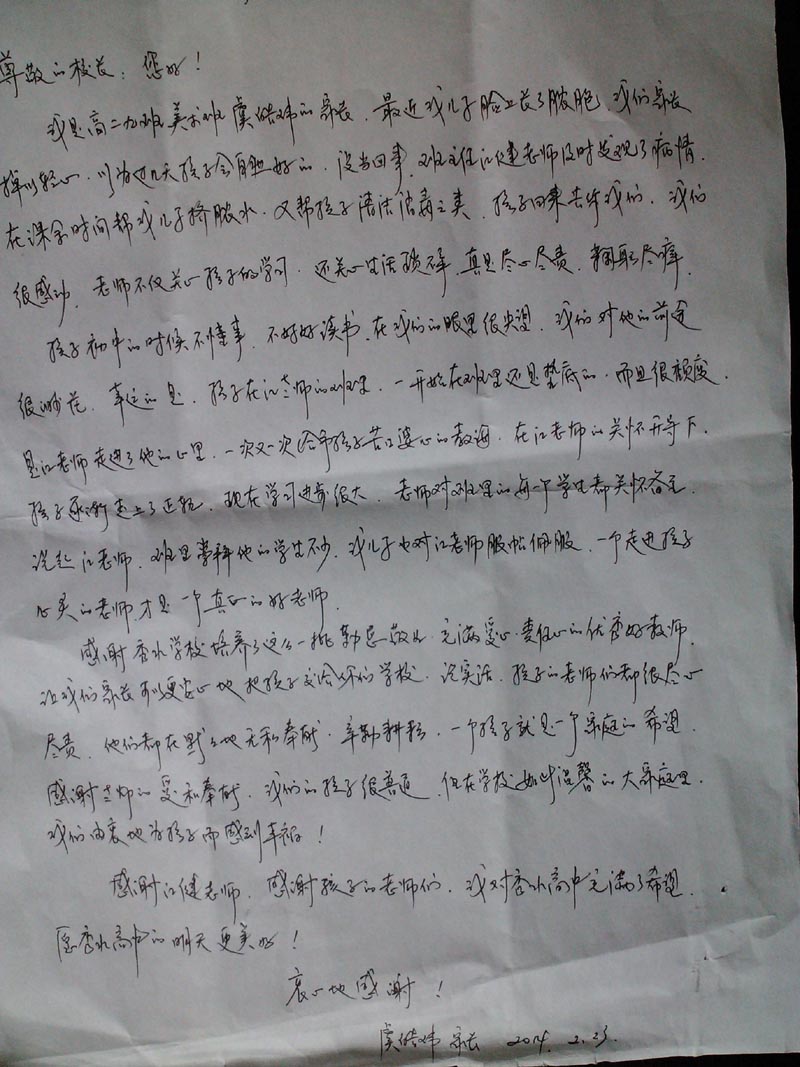 尊敬的校长：您好！
我是高二九班美术班虞皓玮的家长，最近我儿子脸上长了脓胞，我们家长
掉以轻心，以为过几天孩子会自己好的，没当回事，班主任江健老师及时发现了病情，
在课余时间帮我儿子挤脓水，又帮孩子清洁消毒之类，孩子回来告诉我们，我们
很感动，老师不仅关心孩子的学习，还关心生活琐事，真是尽心尽责，鞠躬尽瘁，
孩子初中的时候不懂事，不好好读书，在我们的眼里很失望，我们对他的前途
很渺茫，幸运的是，孩子在江老师的班里，一开始在班里还是垫底的，而且很颓废，
是江老师走进了他的心里，一次又一次给予孩子苦口婆心的教诲，在江老师的关怀开导下，
孩子逐渐走上了正轨，现在学习进步很大，老师对班里的每一个学生都关怀备至，
说起江老师，班里崇拜他的学生不少，我儿子也对江老师服帖佩服，一个走进孩子
心灵的老师，才是一个真正的好老师，
感谢秀水学校培养了这么一批勤恳敬业，充满爱心，责任心的优秀好教师，
让我们家长可以更安心地把孩子交给你们学校，说实话，孩子的老师们都很尽心
尽责，他们都在默默地无私奉献，辛勤耕耘，一个孩子就是一个家庭的希望，
感谢老师的爱和奉献，我们的孩子很普通，但在学校如此温馨的大家庭里，
我们由衷地为孩子而感到幸福！
感谢江健老师，感谢孩子的老师们，我对秀水高中充满了希望，
愿秀水高中的明天更美好！
衷心地感谢！
虞皓玮家长 2014.2.23.